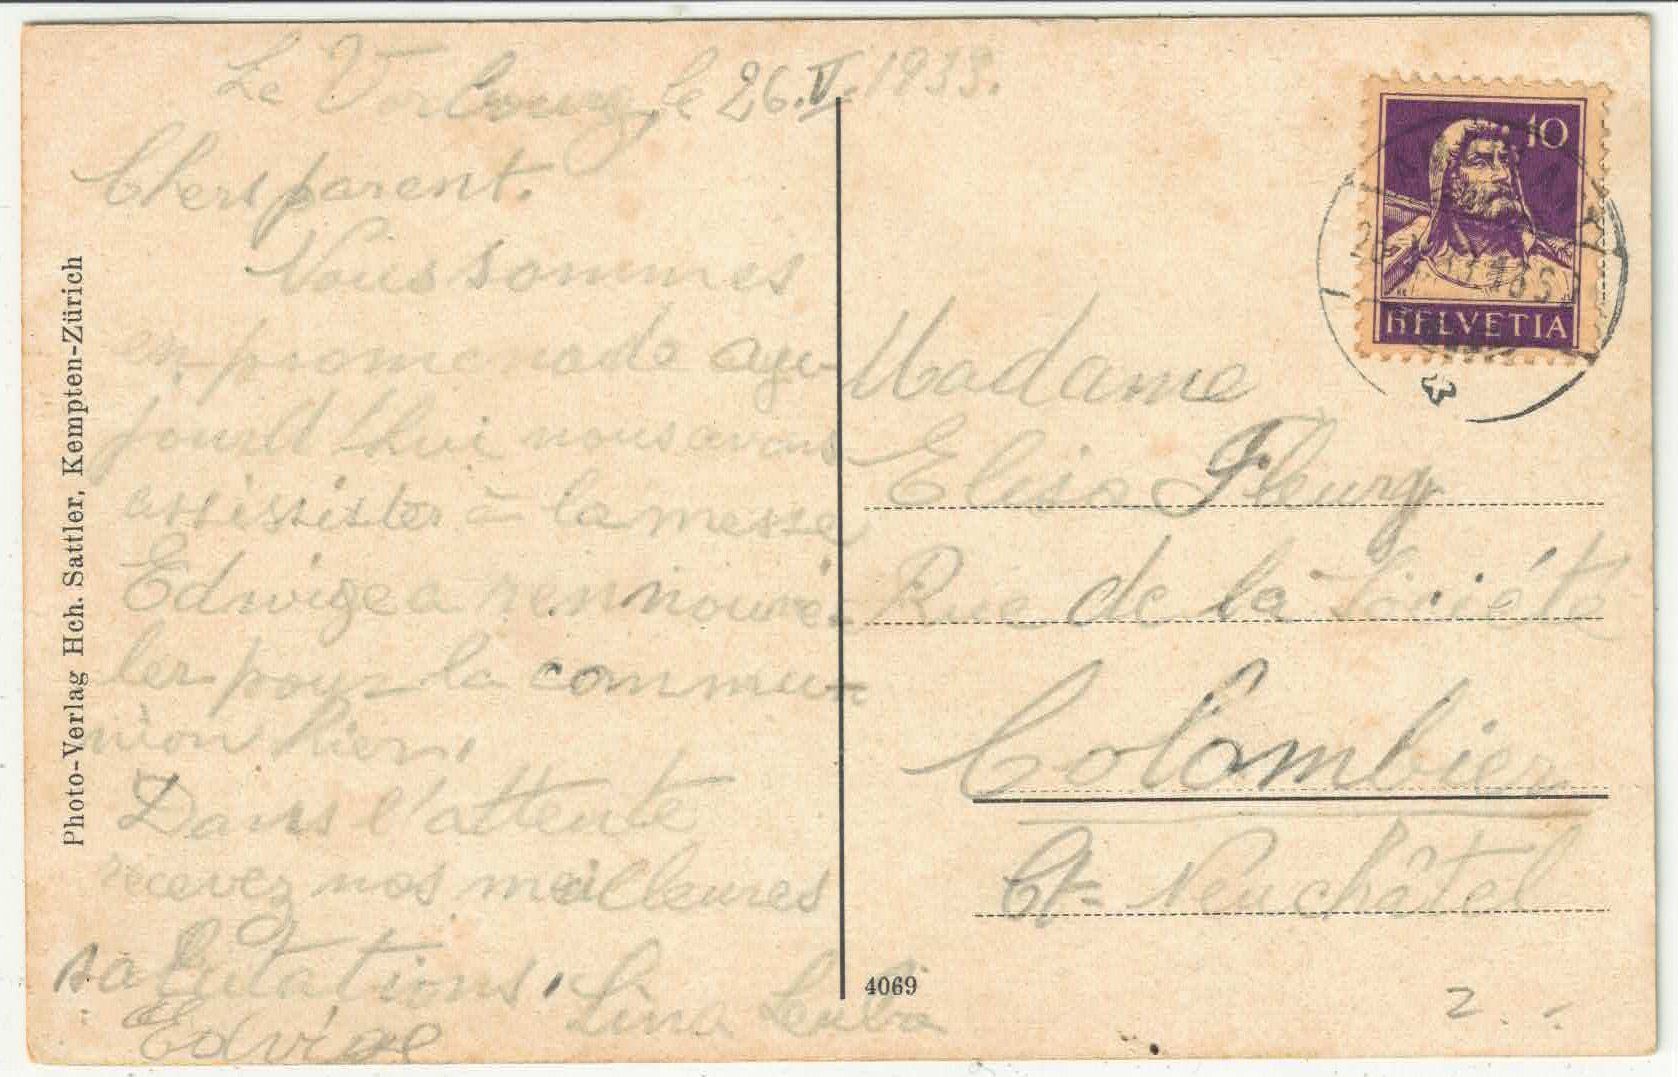 Le Vorbourg, le 26.V.1933.
Chers parent.
Nous sommes
en promenade auj-
jourd'hui nous avons
assissister à la messe
Edwige a rennouve-
ler pour la commu-
nion hier.
Dans l'attente
recevez nos meilleures
salutations.
Edvige Lina Leuba
Madame
Elisa Fleury
Rue de la Société
Colombier
Ct= Neuchâtel
10
HELVETIA
Photo-Verlag Hch. Sattler, Kempten-Zürich
4069
2